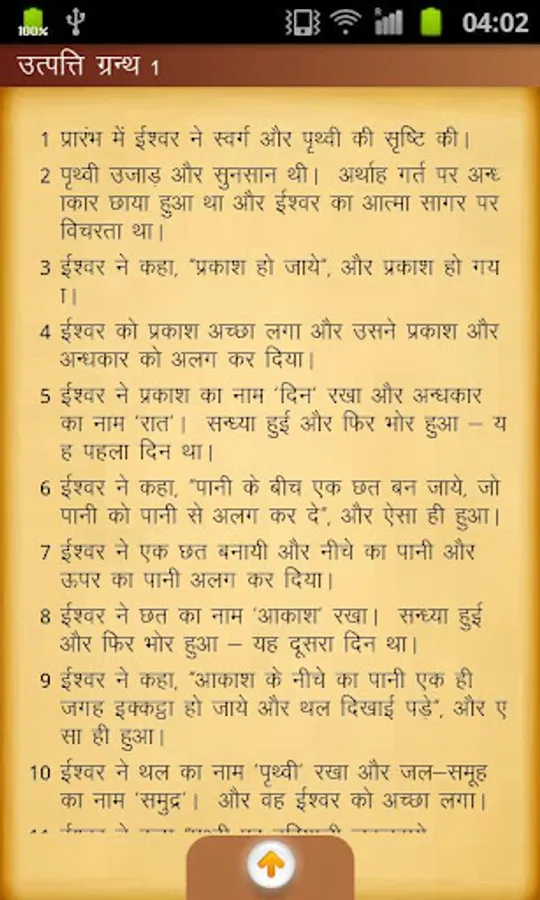 100%
04:02
उत्पत्ति ग्रन्थ 1
1 प्रारंभ में ईश्वर ने स्वर्ग और पृथ्वी की सृष्टि की।
2 पृथ्वी उजाड़ और सुनसान थी। अर्थाह गर्त पर अन्ध
ाकार छाया हुआ था और ईश्वर का आत्मा सागर पर
विचरता था।
3 ईश्वर ने कहा, “प्रकाश हो जाये”, और प्रकाश हो गय
ा।
4 ईश्वर को प्रकाश अच्छा लगा और उसने प्रकाश और
अन्धकार को अलग कर दिया।
5 ईश्वर ने प्रकाश का नाम ‘दिन’ रखा और अन्धकार
का नाम ‘रात’। सन्ध्या हुई और फिर भोर हुआ – य
ह पहला दिन था।
6 ईश्वर ने कहा, “पानी के बीच एक छत बन जाये, जो
पानी को पानी से अलग कर दे”, और ऐसा ही हुआ।
7 ईश्वर ने एक छत बनायी और नीचे का पानी और
ऊपर का पानी अलग कर दिया।
8 ईश्वर ने छत का नाम ‘आकाश’ रखा। सन्ध्या हुई
और फिर भोर हुआ – यह दूसरा दिन था।
9 ईश्वर ने कहा, “आकाश के नीचे का पानी एक ही
जगह इक्कट्ठा हो जाये और थल दिखाई पड़े”, और ए
सा ही हुआ।
10 ईश्वर ने थल का नाम ‘पृथ्वी’ रखा और जल–समूह
का नाम ‘समुद्र’। और वह ईश्वर को अच्छा लगा।